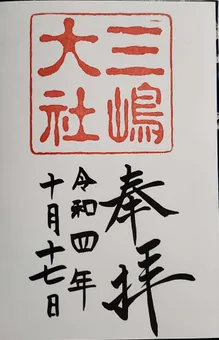 三嶋
大社
奉拝
令和四年
十月十七日